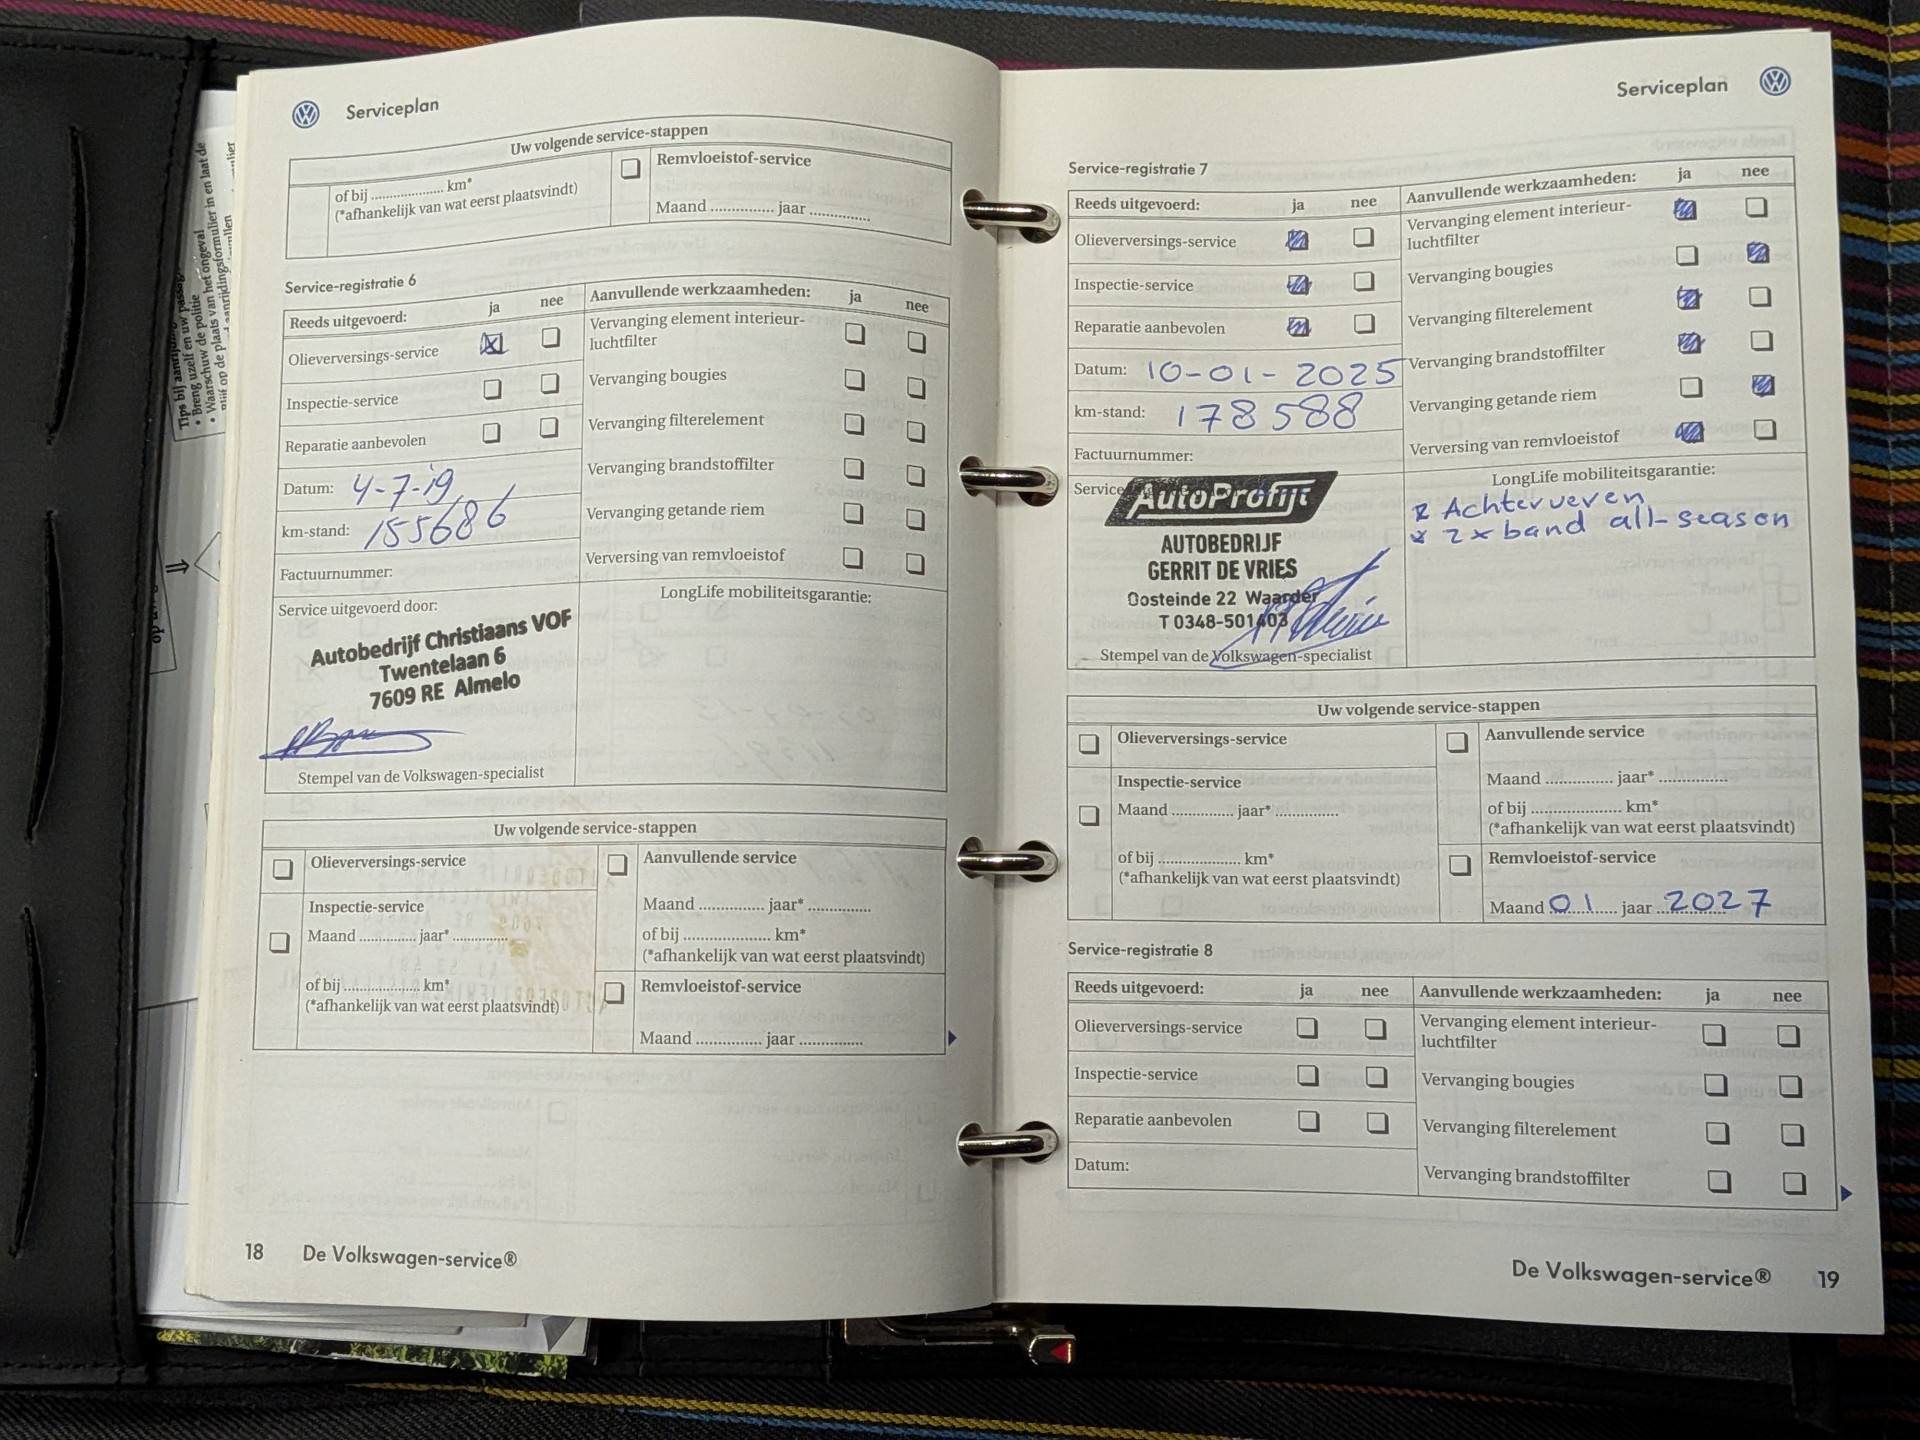 Tips bij aanrijding
• Breng uzelf en uw passag
• Waarschuw de politie
• Blijf op de plaats van het ongeval
aanrijdingsformulier in en laat de
Serviceplan
Uw volgende service-stappen
of bij .................. km*
(*afhankelijk van wat eerst plaatsvindt)
Remvloeistof-service
Maand ............... jaar ..............
Service-registratie 6
Reeds uitgevoerd: ja nee
Olieverversings-service
Inspectie-service
Reparatie aanbevolen
Datum: 4-7-'19
km-stand: 155686
Factuurnummer:
Service uitgevoerd door:
Autobedrijf Christiaans VOF
Twentelaan 6
7609 RE Almelo
Stempel van de Volkswagen-specialist
Aanvullende werkzaamheden: ja nee
Vervanging element interieur-
luchtfilter
Vervanging bougies
Vervanging filterelement
Vervanging brandstoffilter
Vervanging getande riem
Verversing van remvloeistof
LongLife mobiliteitsgarantie:
Uw volgende service-stappen
Olieverversings-service
Inspectie-service
Maand .............. jaar* ..............
of bij ................... km*
(*afhankelijk van wat eerst plaatsvindt)
Aanvullende service
Maand ................ jaar* ................
of bij ..................... km*
(*afhankelijk van wat eerst plaatsvindt)
Remvloeistof-service
Maand ................ jaar ................
18 De Volkswagen-service®
Serviceplan
Service-registratie 7
Reeds uitgevoerd: ja nee
Olieverversings-service
Inspectie-service
Reparatie aanbevolen
Datum: 10-01-2025
km-stand: 178588
Factuurnummer:
Service
AutoProfijt
AUTOBEDRIJF
GERRIT DE VRIES
Oosteinde 22 Waarder
T 0348-501403
Stempel van de Volkswagen-specialist
Aanvullende werkzaamheden: ja nee
Vervanging element interieur-
luchtfilter
Vervanging bougies
Vervanging filterelement
Vervanging brandstoffilter
Vervanging getande riem
Verversing van remvloeistof
LongLife mobiliteitsgarantie:
* Achterveren
* 2x band all-season
Uw volgende service-stappen
Olieverversings-service
Inspectie-service
Maand ............... jaar* ...............
of bij .................... km*
(*afhankelijk van wat eerst plaatsvindt)
Aanvullende service
Maand ................ jaar* ................
of bij ...................... km*
(*afhankelijk van wat eerst plaatsvindt)
Remvloeistof-service
Maand 01 jaar 2027
Service-registratie 8
Reeds uitgevoerd: ja nee
Olieverversings-service
Inspectie-service
Reparatie aanbevolen
Datum:
Aanvullende werkzaamheden: ja nee
Vervanging element interieur-
luchtfilter
Vervanging bougies
Vervanging filterelement
Vervanging brandstoffilter
De Volkswagen-service® 19